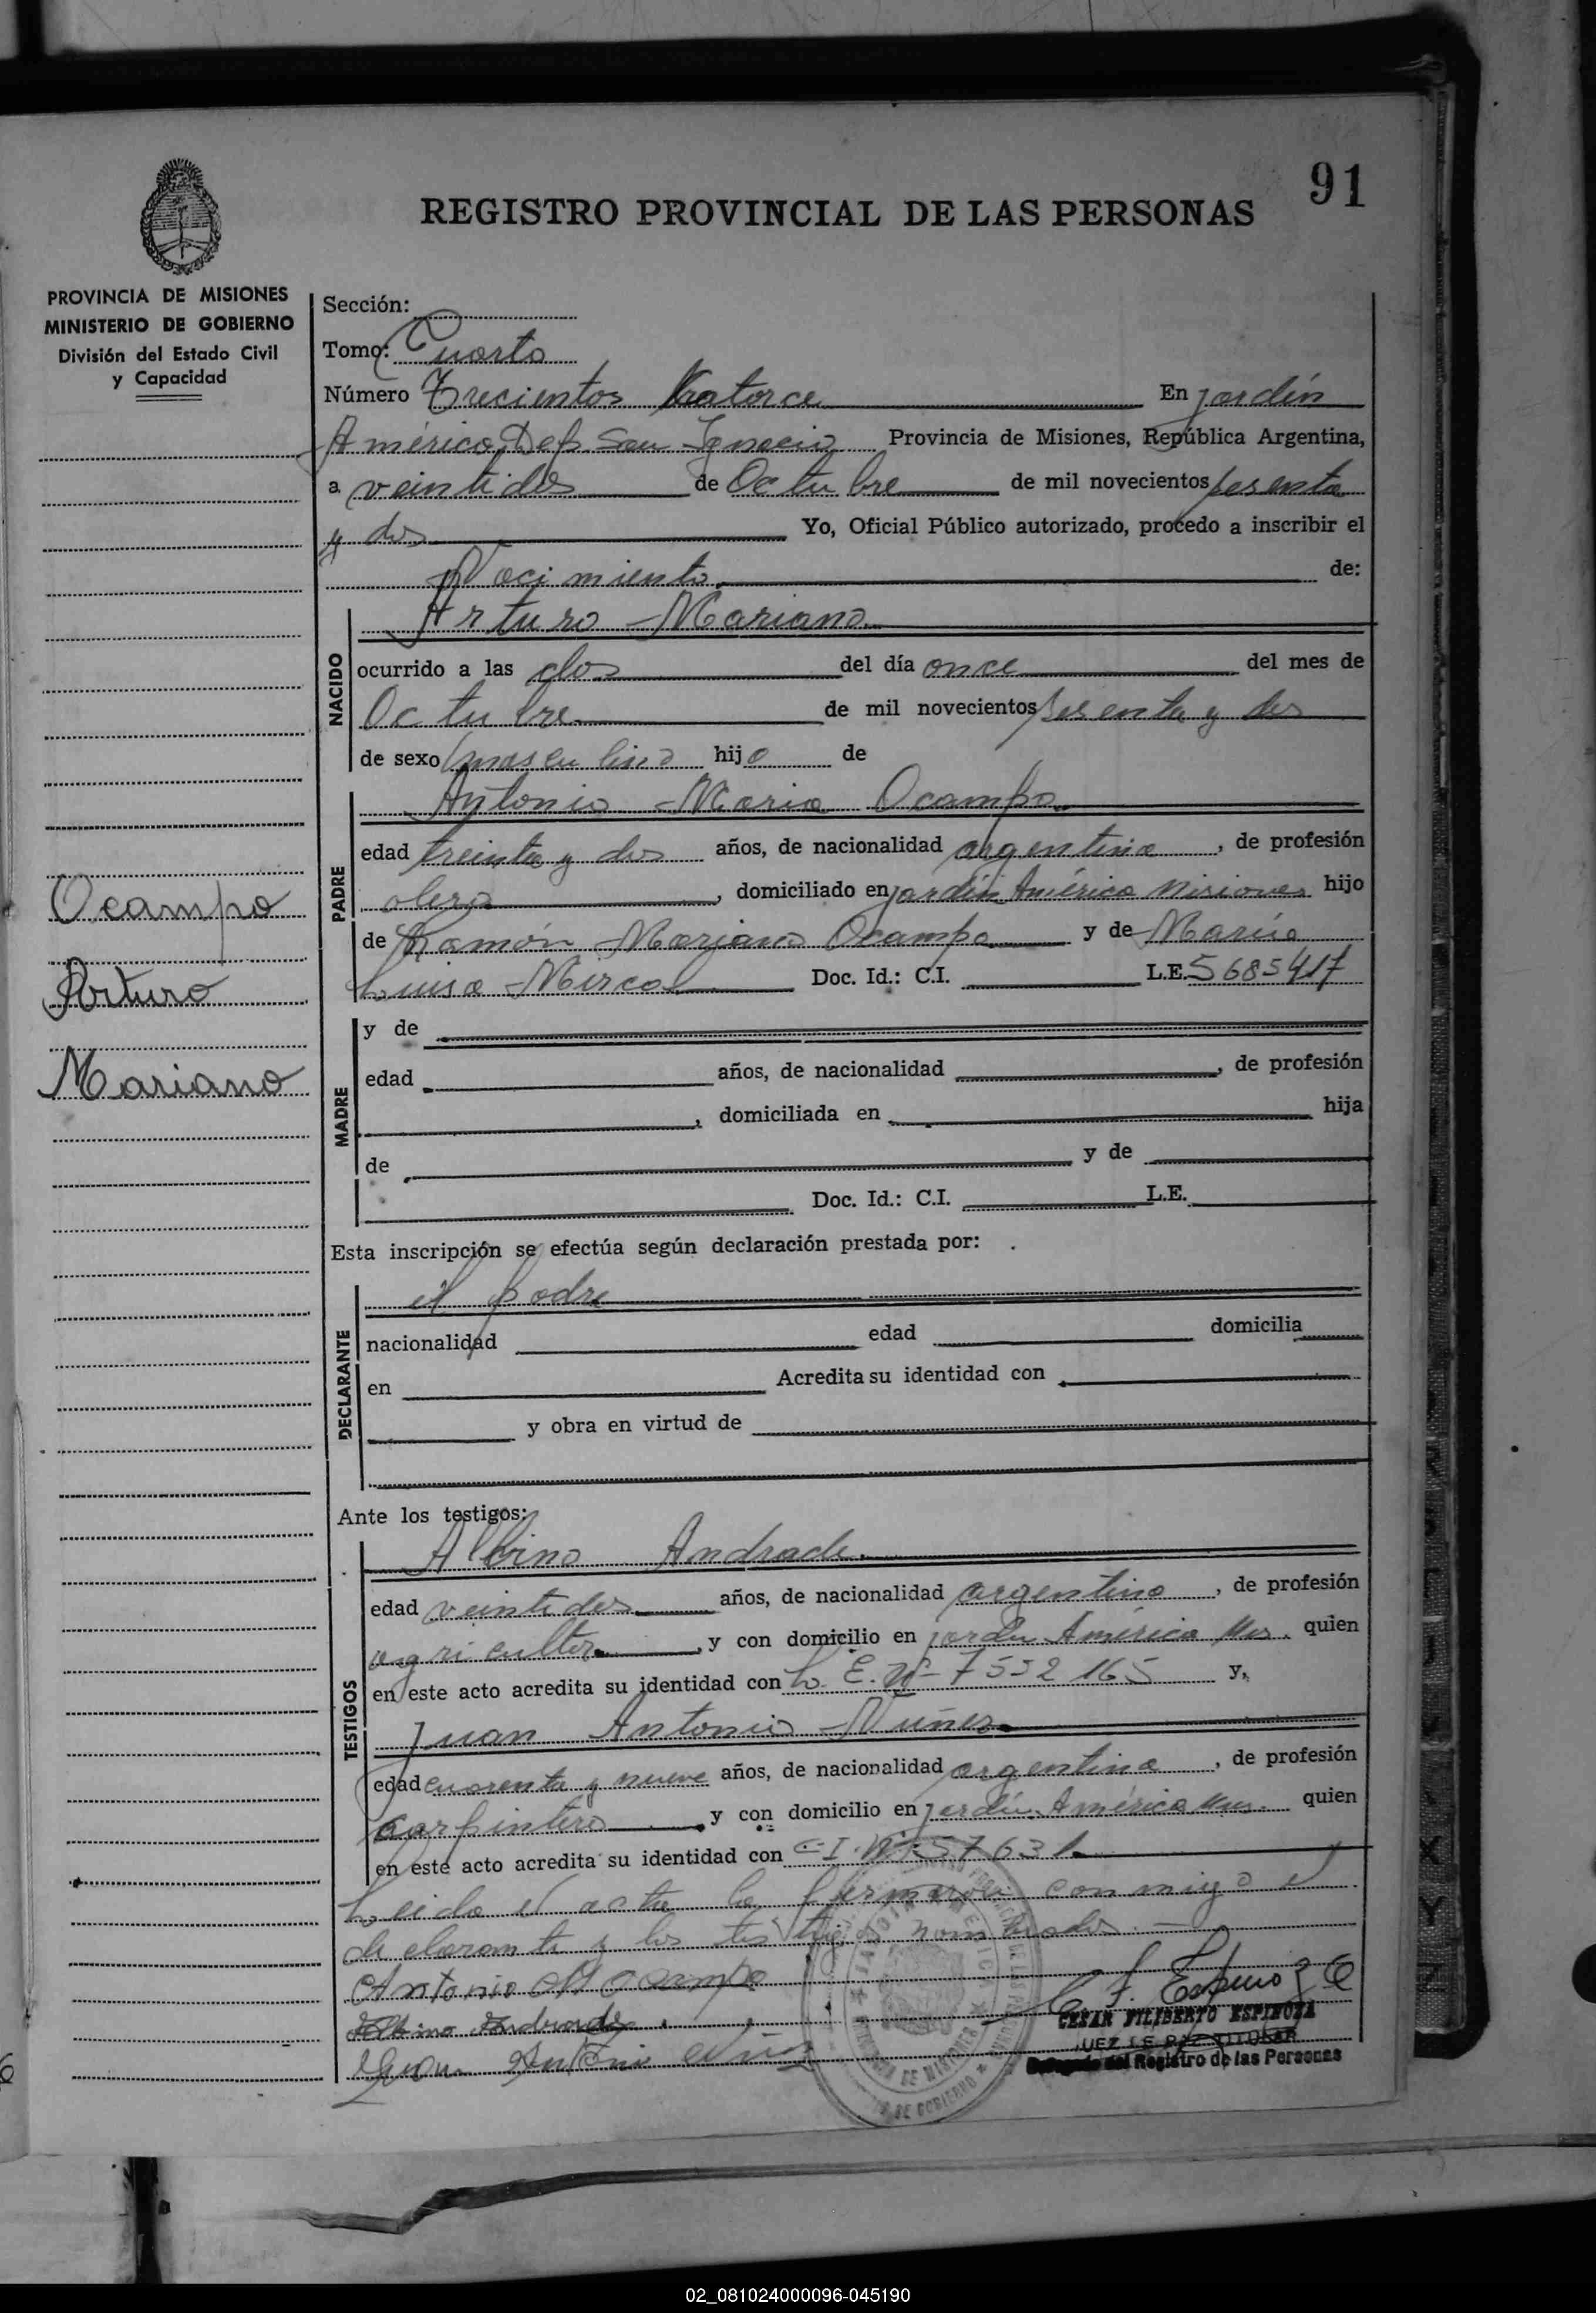 91
REGISTRO PROVINCIAL DE LAS PERSONAS
PROVINCIA DE MISIONES
MINISTERIO DE GOBIERNO
División del Estado Civil
y Capacidad
Ocampo
Arturo
Mariano
Sección:
Tomo: Cuarto
Número Trecientos Catorce En jardín
América, Dep. San Ignacio Provincia de Misiones, República Argentina,
a veintidos de Octubre de mil novecientos sesenta
y dos Yo, Oficial Público autorizado, procedo a inscribir el
Nacimiento de:
NACIDO
Arturo Mariano
ocurrido a las dos del día once del mes de
Octubre de mil novecientos sesenta y dos
de sexo masculino hijo de
PADRE
Antonio Mario Ocampo
edad treinta y dos años, de nacionalidad argentina, de profesión
, domiciliado en jardín América Misiones hijo
de Ramón Mariano Ocampo y de María
Luisa Doc. Id.: C.I. L.E. 5685417
MADRE
y de
edad años, de nacionalidad , de profesión
, domiciliada en hija
de y de
Doc. Id.: C.I. L.E.
Esta inscripción se efectúa según declaración prestada por:
DECLARANTE
el padre
nacionalidad edad domicilia
en Acredita su identidad con
y obra en virtud de
Ante los testigos:
TESTIGOS
Albino Andrade
edad veintidos años, de nacionalidad argentina, de profesión
agricultor, y con domicilio en jardín América Mis. quien
en este acto acredita su identidad con L. E. Nº 7532165 y,
Juan Antonio Núñez
edad cuarenta y nueve años, de nacionalidad argentina, de profesión
carpintero, y con domicilio en jardín América Mis. quien
en este acto acredita su identidad con C.I. Nº 57631
Leida el acta la firmaron conmigo el
declarante y los testigos nombrados.
Antonio M Ocampo
Albino Andrade
Juan Antonio
C. F. Espinoza
CESAR FILIBERTO ESPINOZA
JUEZ DE PAZ TITULAR
Delegado del Registro de las Personas
02_081024000096-045190